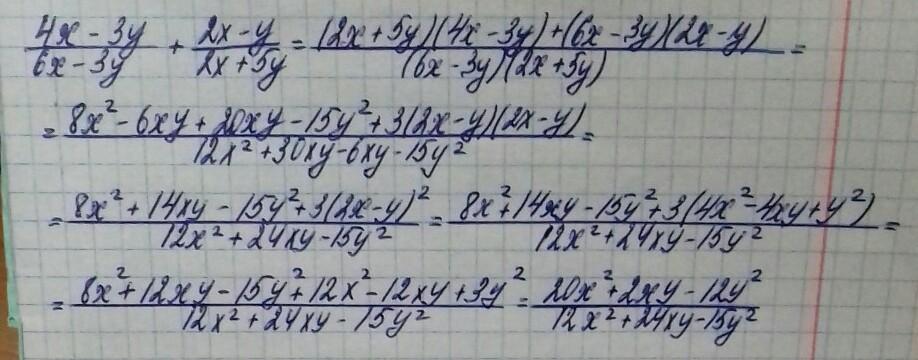 (4x - 3y)/(6x - 3y) + (2x - y)/(2x + 5y) = ((2x + 5y)(4x - 3y) + (6x - 3y)(2x - y))/((6x - 3y)(2x + 5y)) =
= (8x² - 6xy + 20xy - 15y² + 3(2x - y)(2x - y))/(12x² + 30xy - 6xy - 15y²) =
= (8x² + 14xy - 15y² + 3(2x - y)²)/(12x² + 24xy - 15y²) = (8x² + 14xy - 15y² + 3(4x² - 4xy + y²))/(12x² + 24xy - 15y²) =
= (8x² + 12xy - 15y² + 12x² - 12xy + 3y²)/(12x² + 24xy - 15y²) = (20x² + 2xy - 12y²)/(12x² + 24xy - 15y²)